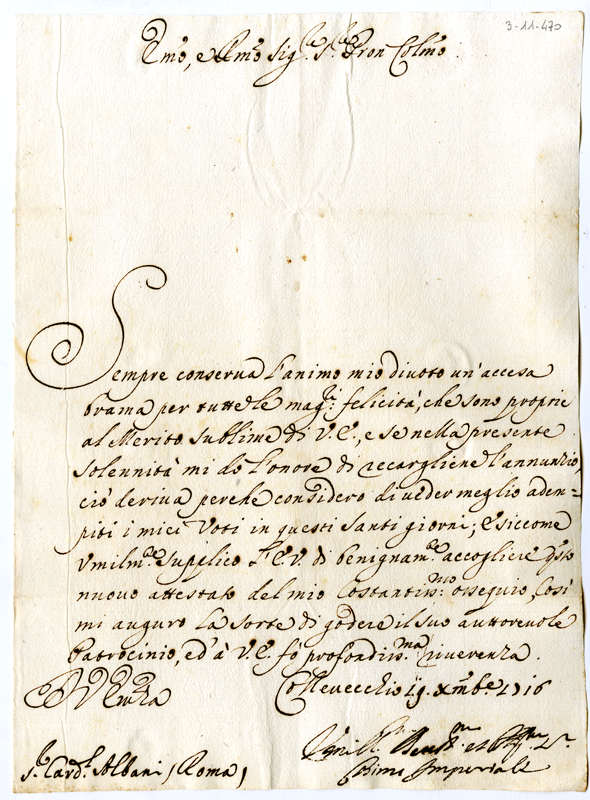 3-11-470
Emo, e Rmo Sig.re S.re Pron Colmo
Sempre conserua l'animo mio diuoto un'accesa
brama per tutte le mag.ri felicità, che sono proprie
al Merito sublime di V.E., e se nella presente
solennità mi do l'onore di recargliene l'annunzio,
ciò deriua perche considero di ueder meglio adem-
piti i miei Voti in questi Santi giorni; E siccome
Vmilm.te supplico l'E.V. di benignam.te accogliere q̃sto
nuouo attestato del mio Costantiss.mo ossequio, Così
mi auguro la sorte di godere il suo auttoreuole
Patrocinio, ed à V.E. fo profondiss.ma riuerenza.
Di V Emza
Colleuecchio 19. Xmbe 1716
S.r Card.l Albani (Roma)
Cosimo Imperiali